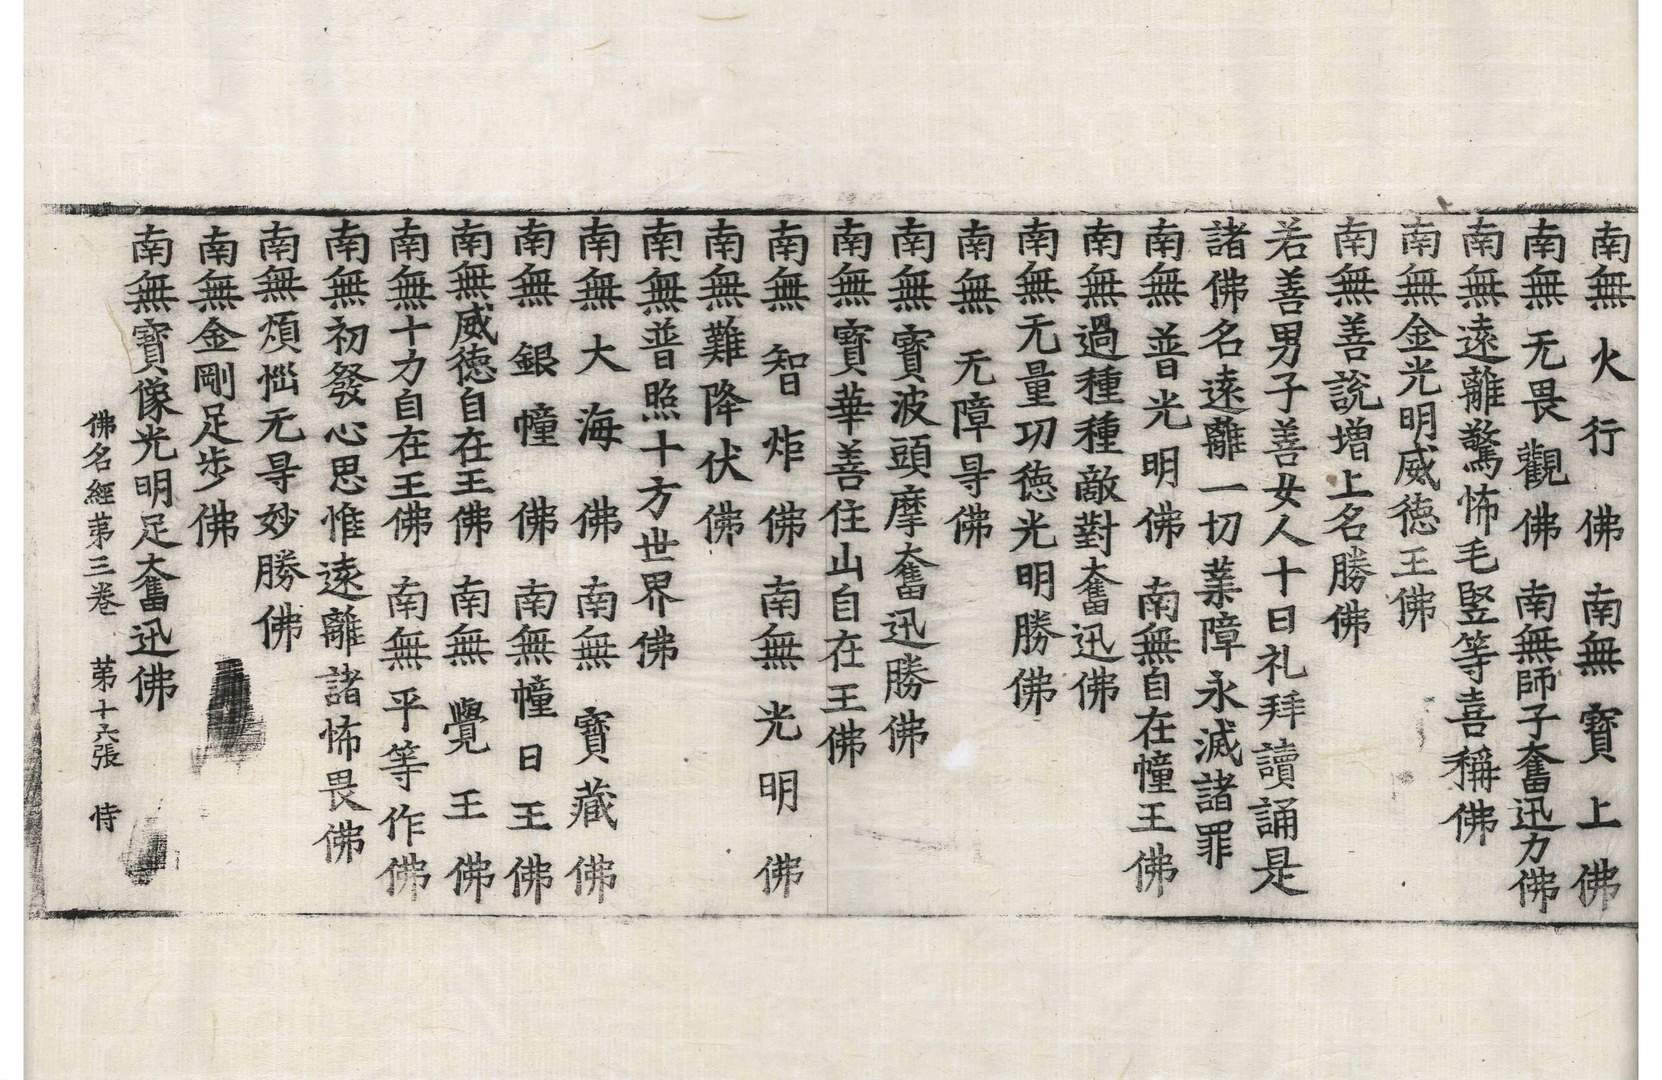 南無火行佛南無寶上佛
南無无畏觀佛南無師子奮迅力佛
南無遠離驚怖毛竪等喜稱佛
南無金光明威德王佛
南無善說增上名勝佛
若善男子善女人十日礼拜讀誦是
諸佛名遠離一切業障永滅諸罪
南無普光明佛南無自在幢王佛
南無過種種敵對奮迅佛
南無无量功德光明勝佛
南無无障㝵佛
南無寶波頭摩奮迅勝佛
南無寶華善住山自在王佛
南無智炸佛南無光明佛
南無難降伏佛
南無普照十方世界佛
南無大海佛南無寶藏佛
南無銀幢佛南無幢日王佛
南無威德自在王佛南無覺王佛
南無十力自在王佛南無平等作佛
南無初發心思惟遠離諸怖畏佛
南無煩惱无㝵妙勝佛
南無金剛足步佛
南無寶像光明足奮迅佛
佛名經第三卷 第十六張 恃